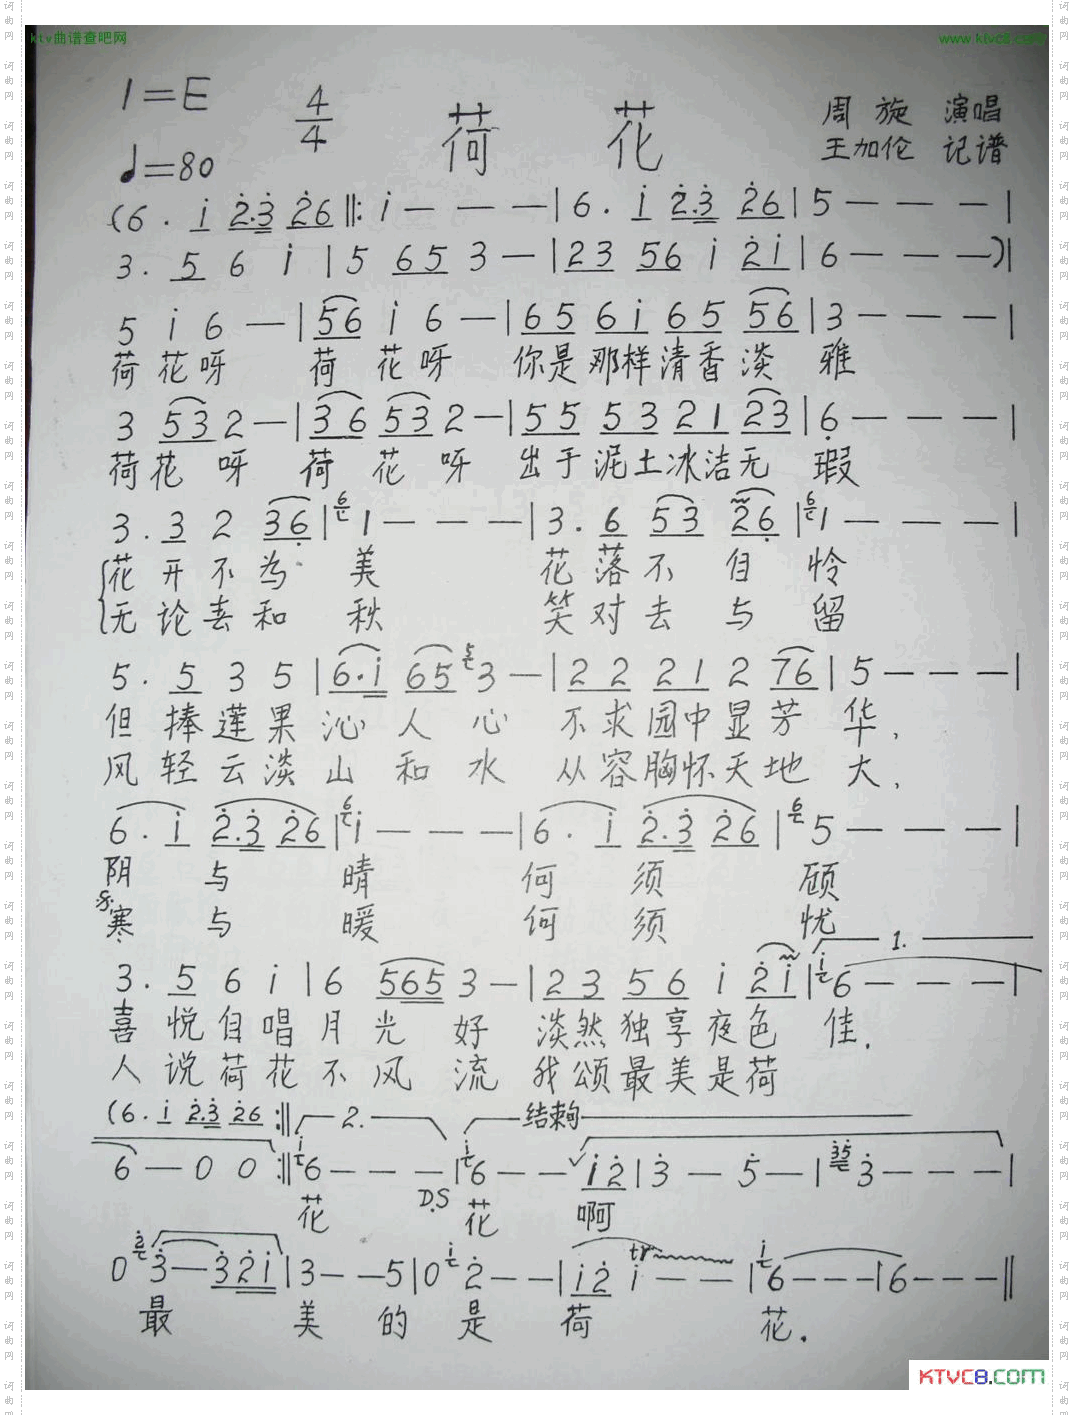 ktv曲谱查吧网 www.ktvc8.com
1=E 4/4 荷 花 周 旋 演唱
♩=80 王加伦 记谱
(6 . i 2.3 26 ‖: i — — — | 6 . i 2.3 26 | 5 — — — |
3 . 5 6 i | 5 65 3 — | 23 56 i 2i | 6 — — — )|
5 i 6 — | 56 i 6 — | 65 6i 65 56 | 3 — — — |
荷 花 呀 荷 花 呀 你是那样清香淡 雅
3 53 2 — | 36 53 2 — | 55 53 21 23 | 6 — — — |
荷 花 呀 荷 花 呀 出于泥土冰洁无 瑕
3 . 3 2 36 | 6 1 — — — | 3 . 6 53 26 | 6 1 — — — |
花 开 不 为 美 花 落 不 自 怜
无 论 春 和 秋 笑 对 去 与 留
5 . 5 3 5 | 6.i 65 5 3 — | 22 21 2 76 | 5 — — — |
但 捧 莲 果 沁 人 心 不求园中显芳 华,
风 轻 云 淡 山 和 水 从容胸怀天地 大,
6 . i 2.3 26 | 6 i — — — | 6 . i 2.3 26 | 6 5 — — — |
阴 与 晴 何 须 顾
寒 与 暖 何 须 忧
1.
3 . 5 6 i | 6 565 3 — | 23 56 i 2i | i 6 — — — |
喜 悦 自 唱 月 光 好 淡然独享夜色 佳.
人 说 荷 花 不 风 流 我颂最美是荷
(6 . i 2.3 26 :‖ 2. 结束句
6 — 0 0 :‖ i 6 — — — | i 6 — — i2 | 3 — 5 — | 35 3 — — — |
花 D.S 花 啊
0 2 3 — 32i | 3 — — 5 | 0 i 2 — — | i2 i tr — — | i 6 — — — | 6 — — — ‖
最 美 的 是 荷 花.
KTVC8.COM